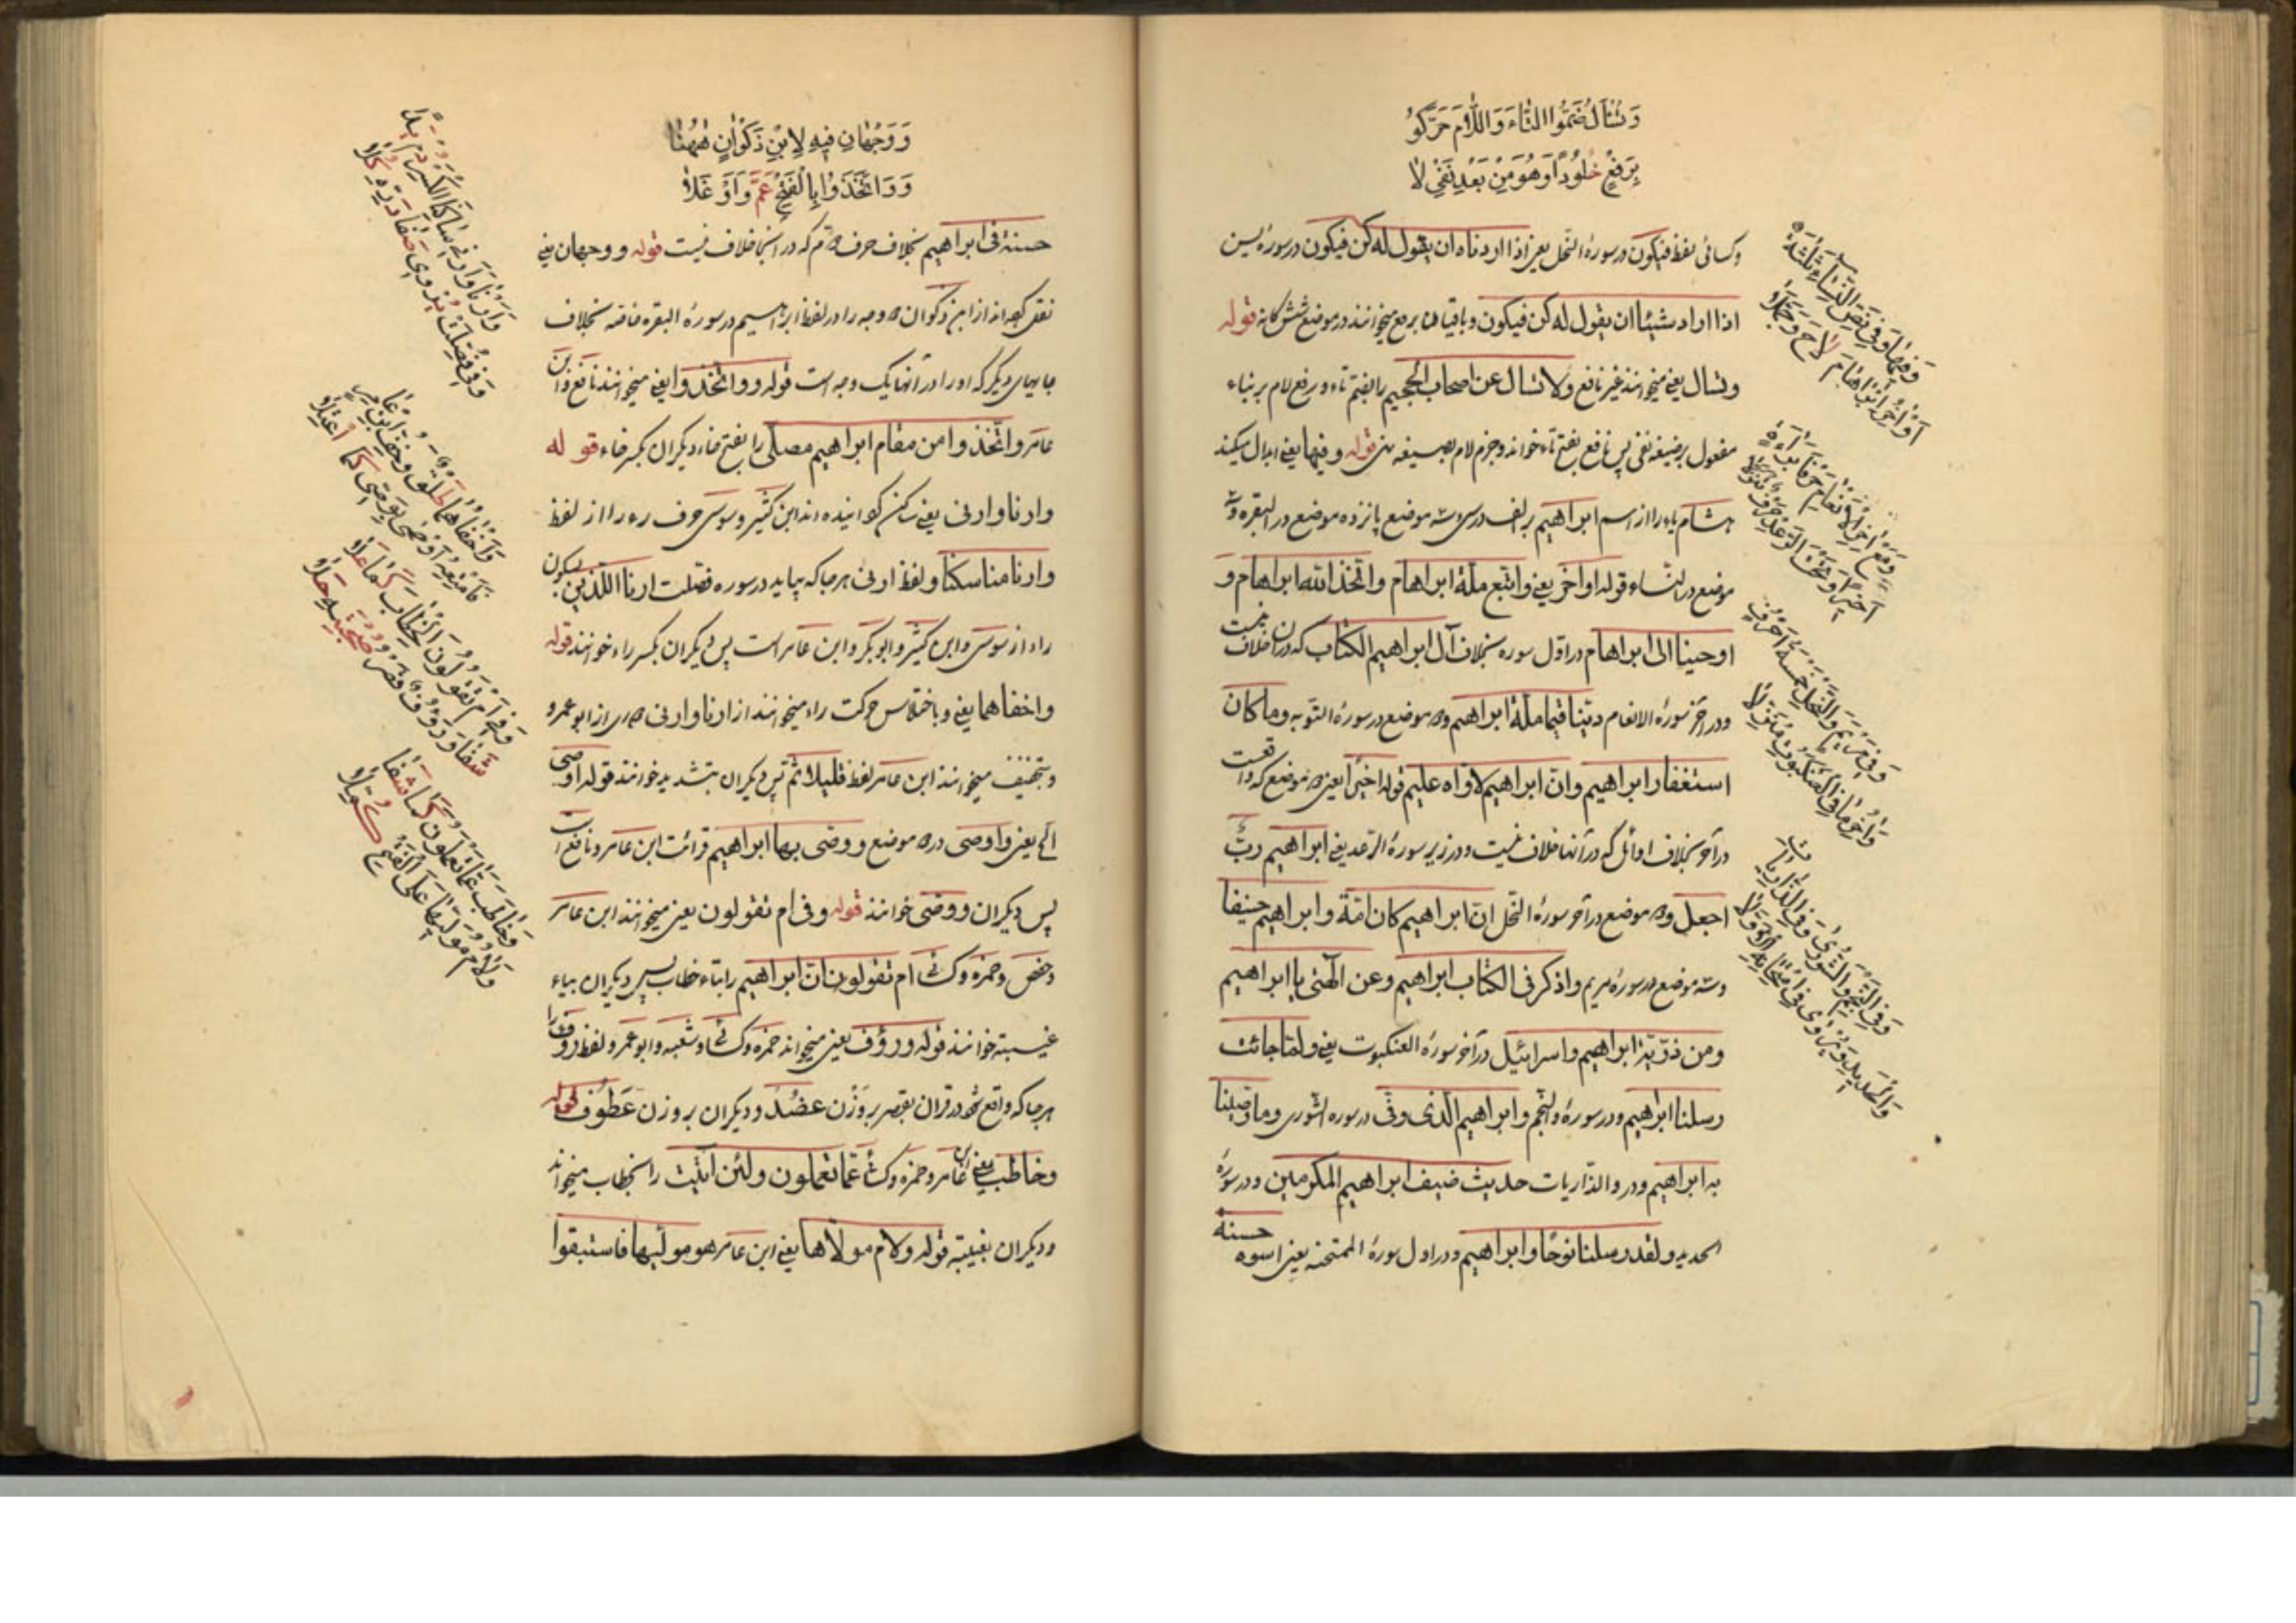 وَتُسْأَلُ ضَمُّوا التَّاءَ وَاللَّامَ حَرَّكُوا
بِرَفْعٍ خُلُودًا وَهُوَ مِنْ بَعْدِ نَفْيِ لَا
وكسائى لفظ فيكون در سورۀ النحل يعنى اذا اردناه ان يقول له كن فيكون در سورۀ يسن
اذا اراد شيئا ان يقول له كن فيكون وباقيا هنا برفع ميخوانند در موضع شش كانه قوله
وتسال يعنى ميخوانند غير نافع ولا تسال عن اصحاب الجحيم را بضم تاء ورفع لام بر بناء
مفعول بر صيغه نفى پس نافع بفتح تاء خواند وجزم لام بصيغه نهى قوله وفيها يعنى ابدال ميكند
هشام ياء را از اسم ابراهيم بر الف در سى وسه موضع پانزده موضع در البقره وسه
موضع در النساء قوله اواخر يعنى واتبع ملة ابراهام واتخذ الله ابراهام و
اوحينا الى ابراهام در اوّل سوره بخلاف آل ابراهيم الكتاب كه در ان خلاف نيست
ودر آخر سورۀ الانعام دينا قيما ملة ابراهيم و٢ موضع در سورۀ التوبه وما كان
استغفار ابراهيم وان ابراهيم لاوّاه عليم قوله اخيرا يعنى ٢ موضع كه واقعست
در آخر بخلاف اوائل كه در آنها خلاف نيست ودر زير سورۀ الرّعد يعنى ابراهيم ربّ
اجعل و٢ موضع در آخر سورۀ النحل ان ابراهيم كان امّة وابراهيم حنيفا
وسه موضع در سورۀ مريم واذكر فى الكتاب ابراهيم وعن الهتى يا ابراهيم
ومن ذرّية ابراهيم واسرائيل در آخر سورۀ العنكبوت يعنى ولمّا جائت
رسلنا ابراهيم ودر سورۀ والنجم وابراهيم الّذى وفّى در سوره الشورى وما وصّينا
به ابراهيم ودر والذّاريات حديث ضيف ابراهيم المكرمين ودر سورۀ
الحديد ولقد رسلنا نوحًا وابراهيم ودر اول سورۀ الممتحنه يعنى اسوه حسنة
وَفِيهَا وَفِي نَصِّ النِّسَاءِ ثَلَاثَةٌ
أَوَاخِرُ إِبْرَاهَامَ لَاحَ وَجَمَّلَا
وَمَعْ آخِرِ الْأَنْعَامِ حَرْفَا بَرَاءَةٍ
أَخِيرًا وَتَحْتَ الرَّعْدِ حَرْفٌ تَنَزَّلَا
وَفِي مَرْيَمٍ وَالنَّحْلِ خَمْسَةُ أَحْرُفٍ
وَآخِرُ مَا فِي الْعَنْكَبُوتِ مُنَزَّلَا
وَفِي النَّجْمِ وَالشُّورَى وَفِي الذَّارِيَاتِ
وَالْحَدِيدِ وَيُرْوَى فِي امْتِحَانِهِ الْأَوَّلَا
وَوَجْهَانِ فِيهِ لِابْنِ ذَكْوَانَ هٰهُنَا
وَوَاتَّخَذُوا بِالْفَتْحِ عَمَّ وَأَوْغَلَا
حسنة فى ابراهيم بخلاف حرف ٢ م كه در انجا خلاف نيست قوله ووجهان يعنى
نقل كرده اند از ابن ذكوان ٢ وجه را در لفظ ابراهيم در سورۀ البقره خاصه بخلاف
جايهاى ديگر كه او را در آنها يك وجه است قوله وواتّخذوا يعنى ميخوانند نافع وابن
عامر واتّخذوا من مقام ابراهيم مصلّى را بفتح خاء ديكران بكسر خاء قوله
وارنا وارنى يعنى ساكن كردانيده اند ابن كثير وسوسى حرف راء را از لفظ
وارنا مناسكنا ولفظ ارنى هر جا كه بيايد در سوره فصّلت ارنا اللّذين بسكون
راء از سوسى وابن كثير وابو بكر وابن عامر است پس ديكران بكسر راء خوانند قوله
واخفاهما يعنى وباختلاس حركت راء ميخوانند از ارنا وارنى دورى از ابو عمرو
وبتخفيف ميخوانند ابن عامر لفظ قليلا ثم پس ديكران بتشديد خوانند قوله اوصى
الخ يعنى واوصى در٢ موضع ووصّى بها ابراهيم قرائت ابن عامر ونافع است
پس ديكران ووصّى خوانند قوله وفى ام تقولون يعنى ميخوانند ابن عامر
وحفص وحمزه وكسائى ام تقولون ان ابراهيم را بتاء خطاب پس ديكران بياء
غيبته خوانند قوله ورؤف يعنى ميخواند حمزه وكسائى وشعبه وابو عمرو لفظ رؤف را
هر جا كه واقع شد در قران بقصر بر وَزْن عَضُد وديكران بر وزن عَطُوف قوله
وخاطب يعنى ابن عامر وحمزه وكسائى عمّا تعملون ولئن اتيت را بخطاب ميخوانند
وديكران بغيبته قوله ولام مولّاها يعنى ابن عامر هو موليها فاستبقوا
وَأَرْنَا وَأَرْنِي سَاكِنَا الْكَسْرِ دُمْ يَدًا
وَفِي فُصِّلَتْ يُرْوَى صَفَا دَرِّهِ كُلَا
وَأَخْفَاهُمَا طَلْقٌ وَخِفُّ ابْنِ عَامِرٍ
فَأُمْتِعُهُ أَوْصَى بِوَصَّى كَمَا اعْتَلَا
وَفِي أَمْ تَقُولُونَ الْخِطَابُ كَمَا عَلَا
شَفَا وَرَءُوفٌ قَصْرُ صُحْبَتِهِ حَلَا
وَخَاطَبَ عَمَّا تَعْمَلُونَ كَمَا شَفَا
وَلَامُ مُوَلِّيهَا عَلَى الْفَتْحِ كُمِّلَا